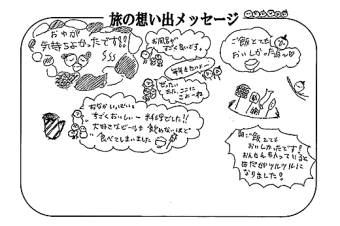 旅の想い出メッセージ
おゆが
気持ちよかったです!!
お風呂が
すごく良いです。
ご飯とても
おいしかったヨ〜♡
毎年きたいよ〜
ぜったい
また、ここに
こよーね
おなかいっぱい。
すごくおいしい〜 料理でした!!
大好きなビールも 飲めないほど
食べてしまいました
朝ご飯とても
おいしかったです!
おんせん入っていると
はだがツルツルに
なりました!